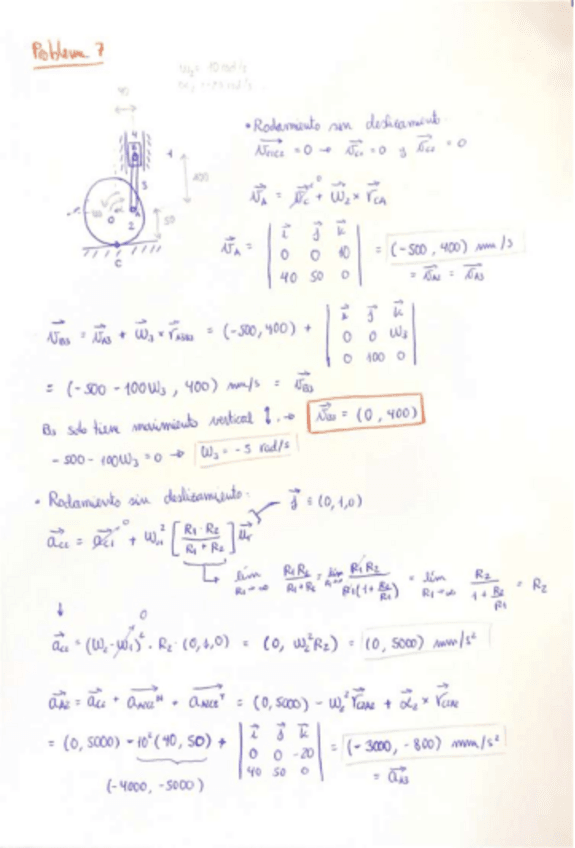 Problema 7
40
4
B
3
100
A
O
2
50
C
• Rodamiento sin deslizamiento:
= 0 → = 0 y = 0
v⃗A = v⃗C + ω⃗2 × r⃗CA
v⃗A = | i⃗ j⃗ k⃗ | = (-500, 400) mm/s
| 0 0 10 | = v⃗A2 = v⃗A3
| 40 50 0 |
v⃗B3 = v⃗A3 + ω⃗3 × r⃗A3B3 = (-500, 400) + | i⃗ j⃗ k⃗ |
| 0 0 ω3 |
| 0 100 0 |
= (-500 - 100ω3, 400) mm/s = v⃗B3
B3 solo tiene movimiento vertical ↕. → v⃗B3 = (0, 400)
-500 - 100ω3 = 0 → ω3 = -5 rad/s
• Rodamiento sin deslizamiento:
j⃗ = (0,1,0)
a⃗C2 = a⃗C1 0 + [ R1·R2 / R1+R2 ]
lím R1→∞ R1R2 / R1+R2 = lím R1R2 / R1(1+R2/R1) = lím R1→∞ R2 / 1+R2/R1 = R2
↓
a⃗C2 = (ω2-ω1)² · R2 · (0,1,0) = (0, ω2²R2) = (0, 5000) mm/s²
a⃗A2 = a⃗C2 + + = (0, 5000) - ω2² r⃗C2A2 + α⃗2 × r⃗C2A2
= (0, 5000) - 10²(40, 50) + | i⃗ j⃗ k⃗ | = (-3000, -800) mm/s²
| 0 0 -20 |
| 40 50 0 | = a⃗A3
(-4000, -5000)